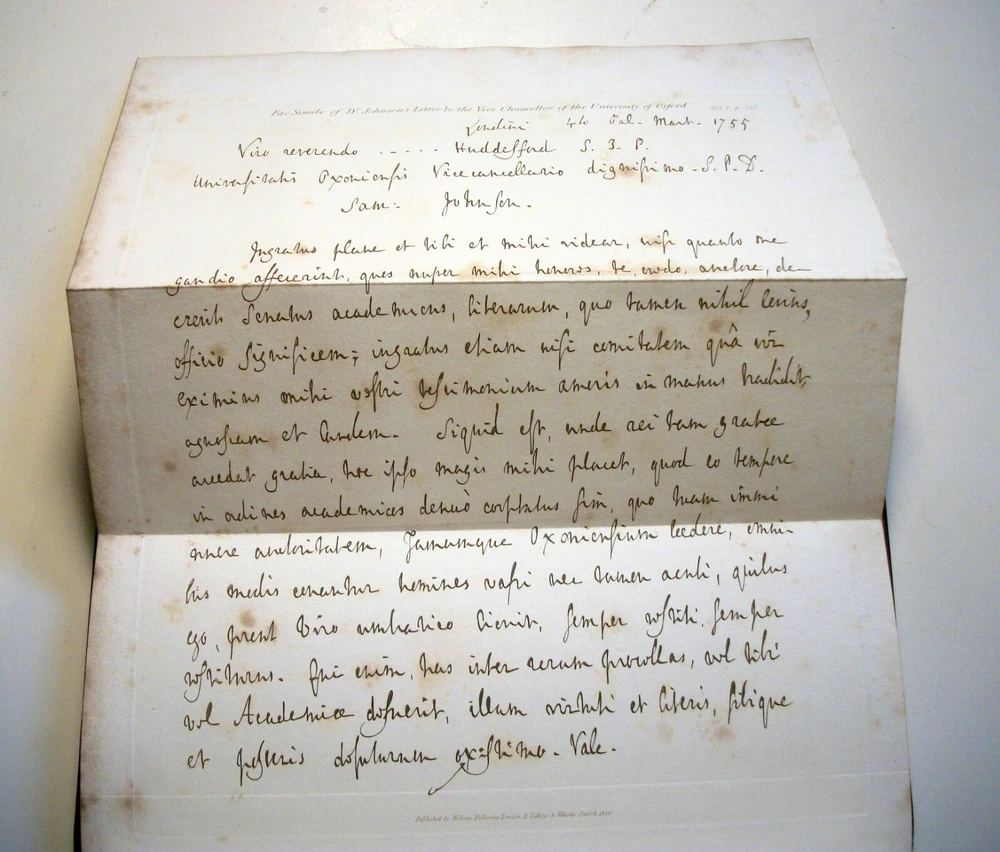 Fac Simile of Dr. Johnson's Letter to the Vice Chancellor of the University of Oxford. Vol. 1. p.
Londini 4to Cal. Mart. 1755
Viro reverendo ----- Huddesford S. T. P.
Universitatis Oxoniensis Vicecancellario dignissimo. S. P. D.
Sam: Johnson.
Ingratus plane et tibi et mihi videar, nisi quanto me
gaudio affecerint, quos nuper mihi honores, te, credo, auctore, de-
crerit Senatus academicus, literarum, quo tamen nihil levius,
officio significem; ingratus etiam nisi comitatem quâ vir
eximius mihi vestri testimonium amoris in manus tradidit
agnoscam et laudem. Siquid est, unde rei tam gratæ
accedat gratia, hoc ipso magis mihi placet, quod eo tempore
in ordines academicos denuò cooptatus sim, quo tuam immi
nuere auctoritatem, famamque Oxoniensium lædere, omni-
bus modis conantur homines vafri nec tamen acuti, quibus
ego, prout Viro umbratico licuit, semper restiti, semper
restiturus. Qui enim, has inter rerum procellas, vel tibi
vel Academiæ defuerit, illum virtuti et literis, sibique
et posteris defuturum existimo. Vale.
Published by William Pickering London, & Talboys & Wheeler Oxford, 1825